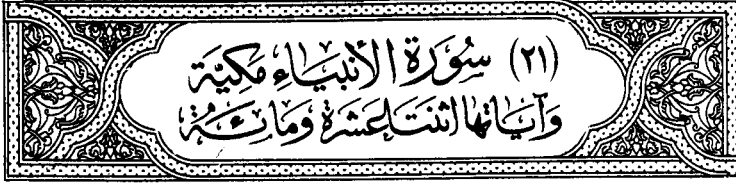 (٢١) سُورَةُ الأَنْبِيَاءِ مَكِيَّة
وَآيَاتُهَا اثْنَتَا عَشْرَةَ وَمَائَةٌ